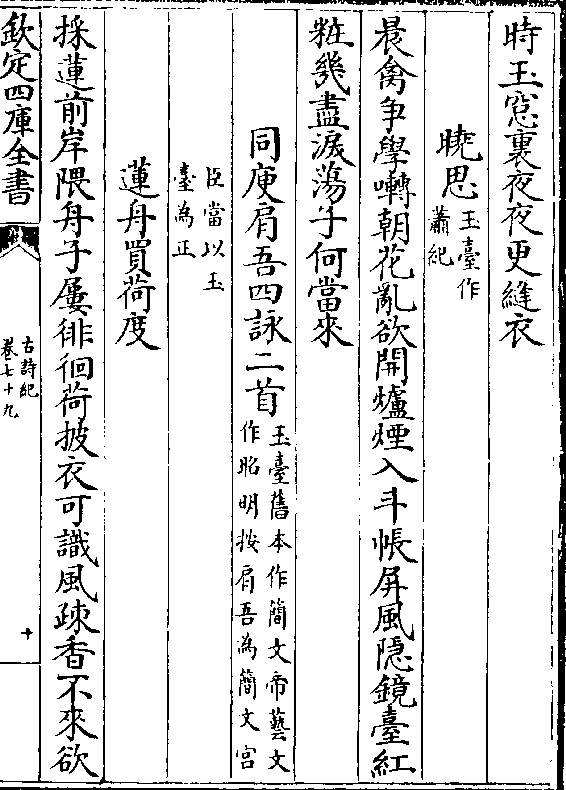 時玉窓裏夜夜更縫衣
曉思玉臺作
蕭紀
晨禽争學囀朝花亂欲開爐煙入斗帳屏風隠鏡臺紅
粧幾盡淚蕩子何當來
同庾肩吾四詠二首玉臺舊本作簡文帝藝文
作昭明按肩吾為簡文宫
臣當以玉
臺為正
蓮舟買荷度
採蓮前岸隈舟子屢徘徊荷披衣可識風疎香不來欲
欽定四庫全書
古詩紀
卷七十九
十